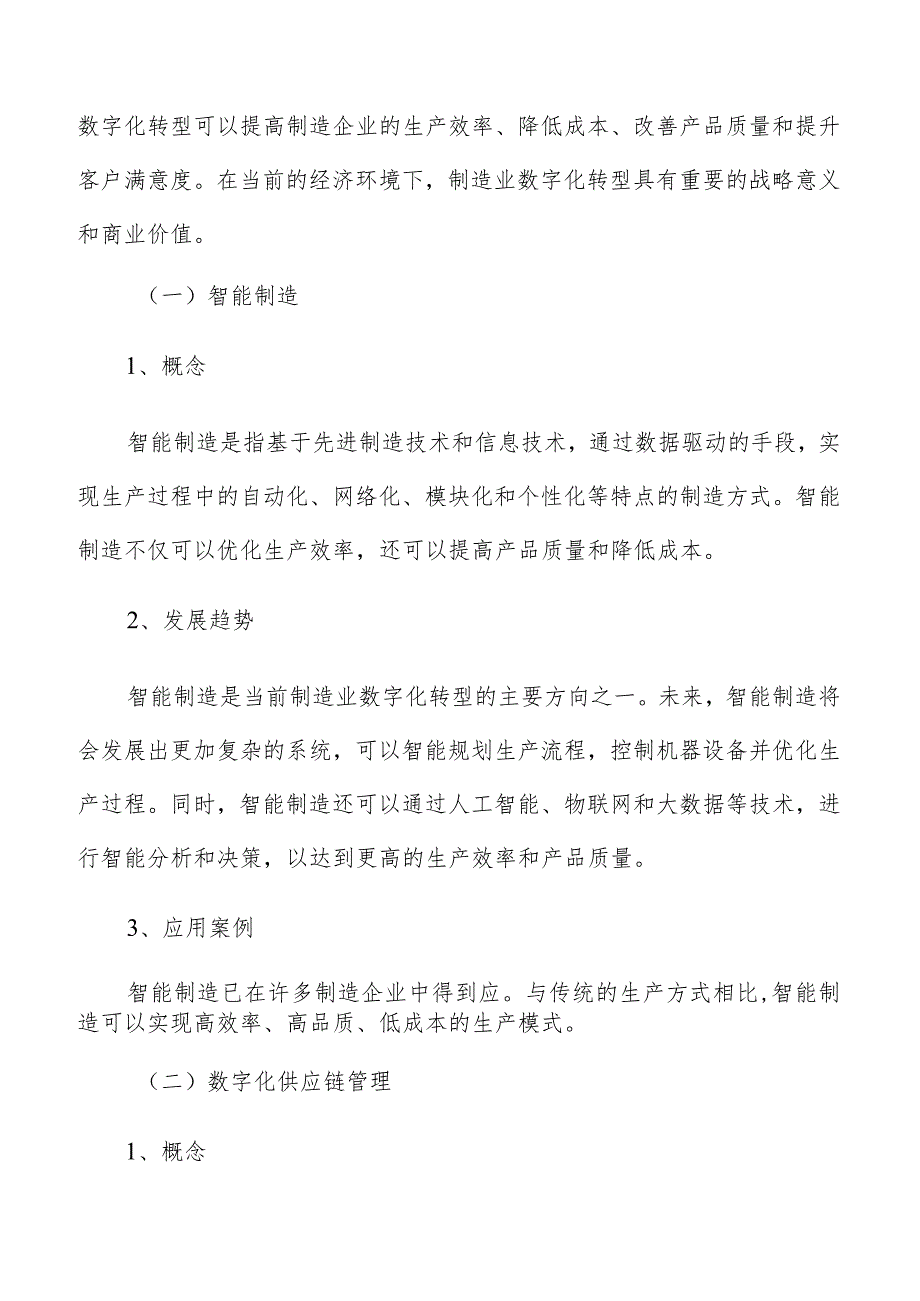 数字化转型可以提高制造企业的生产效率、降低成本、改善产品质量和提升
客户满意度。在当前的经济环境下，制造业数字化转型具有重要的战略意义
和商业价值。
（一）智能制造
1、概念
智能制造是指基于先进制造技术和信息技术，通过数据驱动的手段，实
现生产过程中的自动化、网络化、模块化和个性化等特点的制造方式。智能
制造不仅可以优化生产效率，还可以提高产品质量和降低成本。
2、发展趋势
智能制造是当前制造业数字化转型的主要方向之一。未来，智能制造将
会发展出更加复杂的系统，可以智能规划生产流程，控制机器设备并优化生
产过程。同时，智能制造还可以通过人工智能、物联网和大数据等技术，进
行智能分析和决策，以达到更高的生产效率和产品质量。
3、应用案例
智能制造已在许多制造企业中得到应。与传统的生产方式相比,智能制
造可以实现高效率、高品质、低成本的生产模式。
（二）数字化供应链管理
1、概念